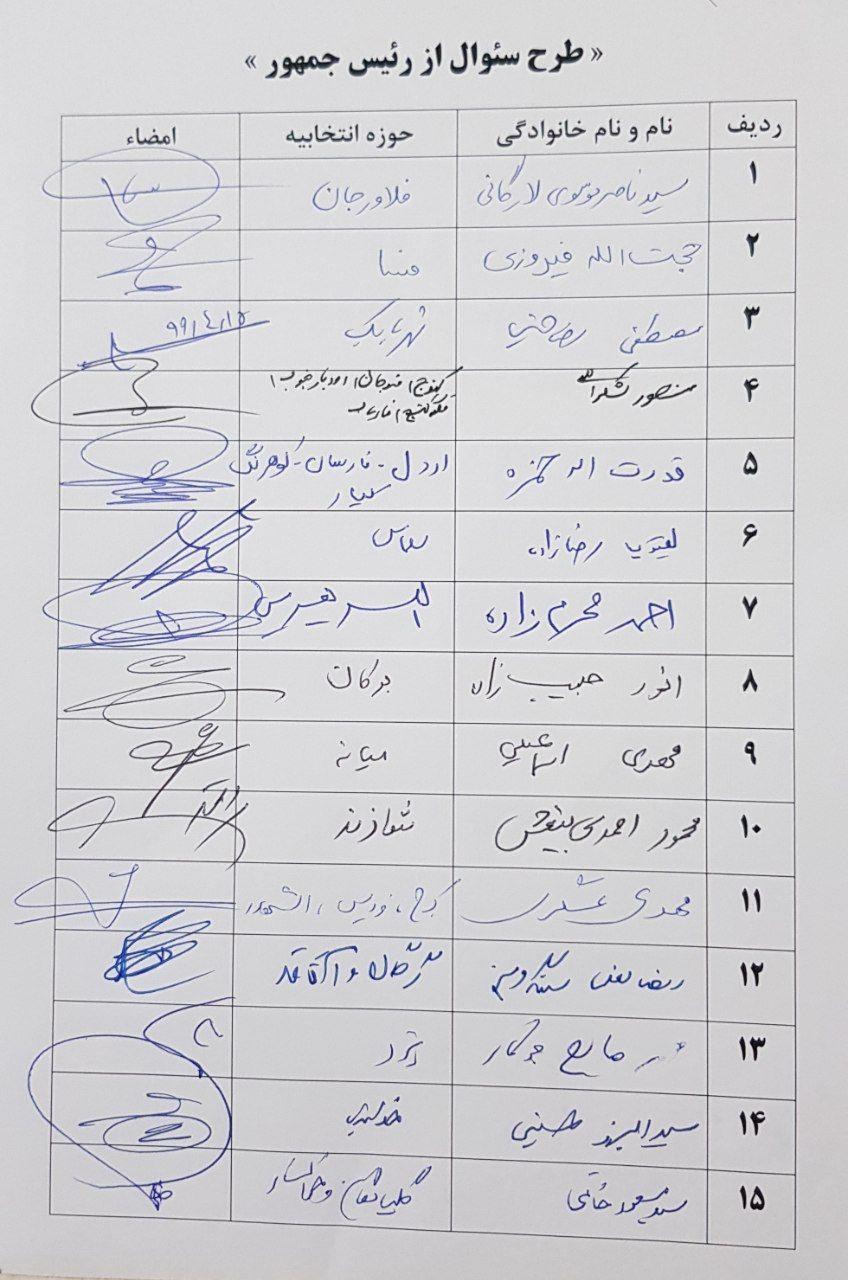 « طرح سئوال از رئیس جمهور »
ردیف نام و نام خانوادگی حوزه انتخابیه امضاء
۱ سید ناصر موسوی لارگانی فلاورجان
۲ حجت الله فیروزی فسا
۳ مصطفی رضاحسینی شهربابک ۹۹/۴/۱۵
۴ منصور شکرالهی کهنوج، رودبار جنوب،
قلعه گنج، فاریاب
۵ قدرت اله حمزه اردل - فارسان - کوهرنگ
کیار
۶ یعقوب رضازاده سلماس
۷ احمد محرم زاده اهر هریس
۸ انور حبیب زاده بوکان
۹ مهدی اسماعیلی میانه
۱۰ محمود احمدی بیغش شازند
۱۱ مهدی عسگری کرج، فردیس، اشتهارد
۱۲ رمضانعلی سنگدوینی گرگان و آق قلا
۱۳ صالح جوکار یزد
۱۴ سید البرز حسینی خدابنده
۱۵ سید مسعود خاتمی گلپایگان و خوانسار